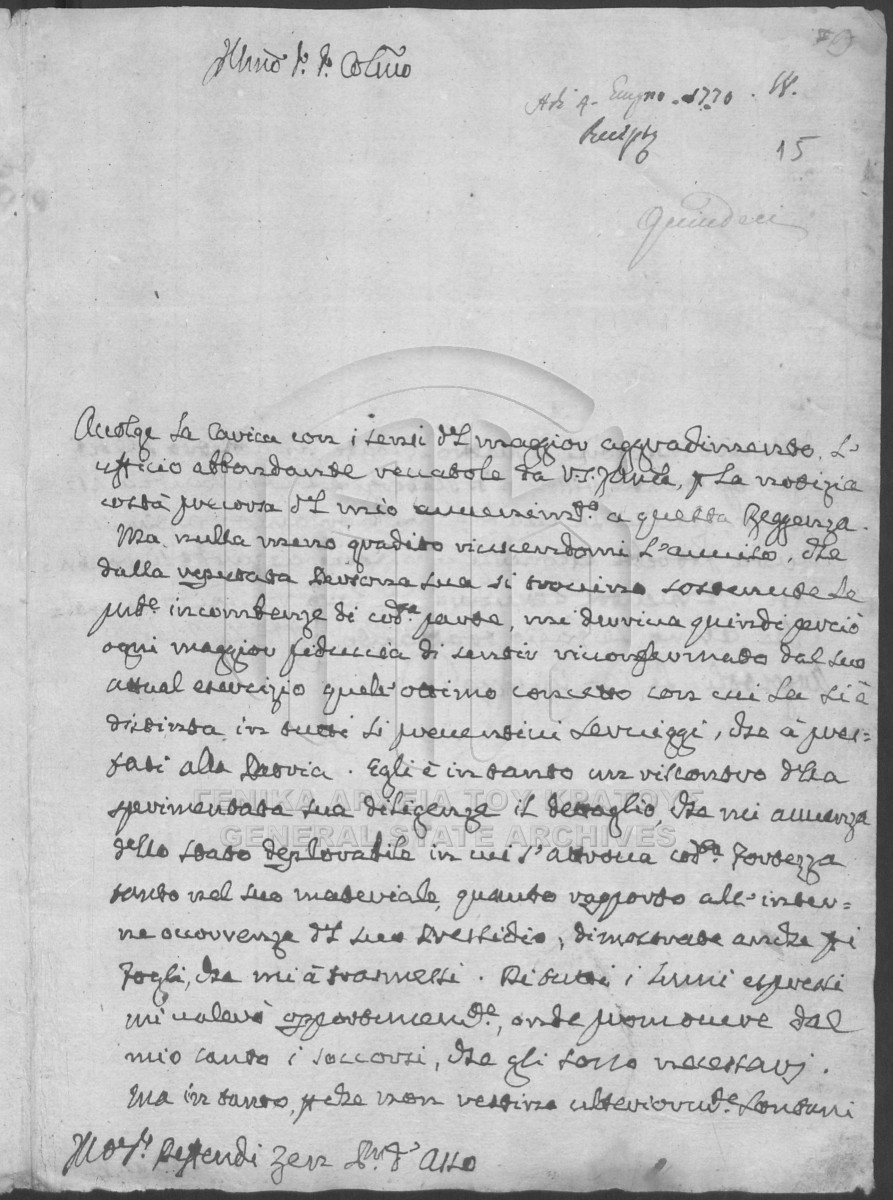 Illmo Sr. Sr. Colmo
Adi 4. Giugno. 1770. 
Recepta
15
Quindeci
Accolge la Carica con i sensi del maggior aggradimento, l'
ufficio abbondante reccatole da V.S. Illma, p la notizia
costà precorsa del mio avvenimto a questa Reggenza.
Ma nulla meno gradito riuscendomi l'avviso, che
dalla reputata Persona sua si trovino sostenute le
pubce incombenze di codta parte, mi deriva quindi perciò
ogni maggior fiduccia di sentir riconfermato dal suo
attual esercizio quell'ottimo concetto con cui la si è
distinta in tutti li preventivi serviggi, che à pres=
tati alla Patria. Egli è in tanto un riscontro della
sperimentata sua diligenza il dettaglio, che mi avvanza
dello stato deplorabile in cui s'attrova codta Fortezza
tanto nel suo materiale, quanto rapporto all'inter=
ne occorrenze del suo Pressidio, dimostrate anche p i
Fogli, che mi à trasmessi. Di tutti i lumi espressi
mi valerò opportunemte, onde promovere dal
mio canto i soccorsi, che gli sono necessarj.
Ma in tanto, p che non restino ulteriormte lontani
ΓΕΝΙΚΑ ΑΡΧΕΙΑ ΤΟΥ ΚΡΑΤΟΥΣ
GENERAL STATE ARCHIVES
Zen
Asso